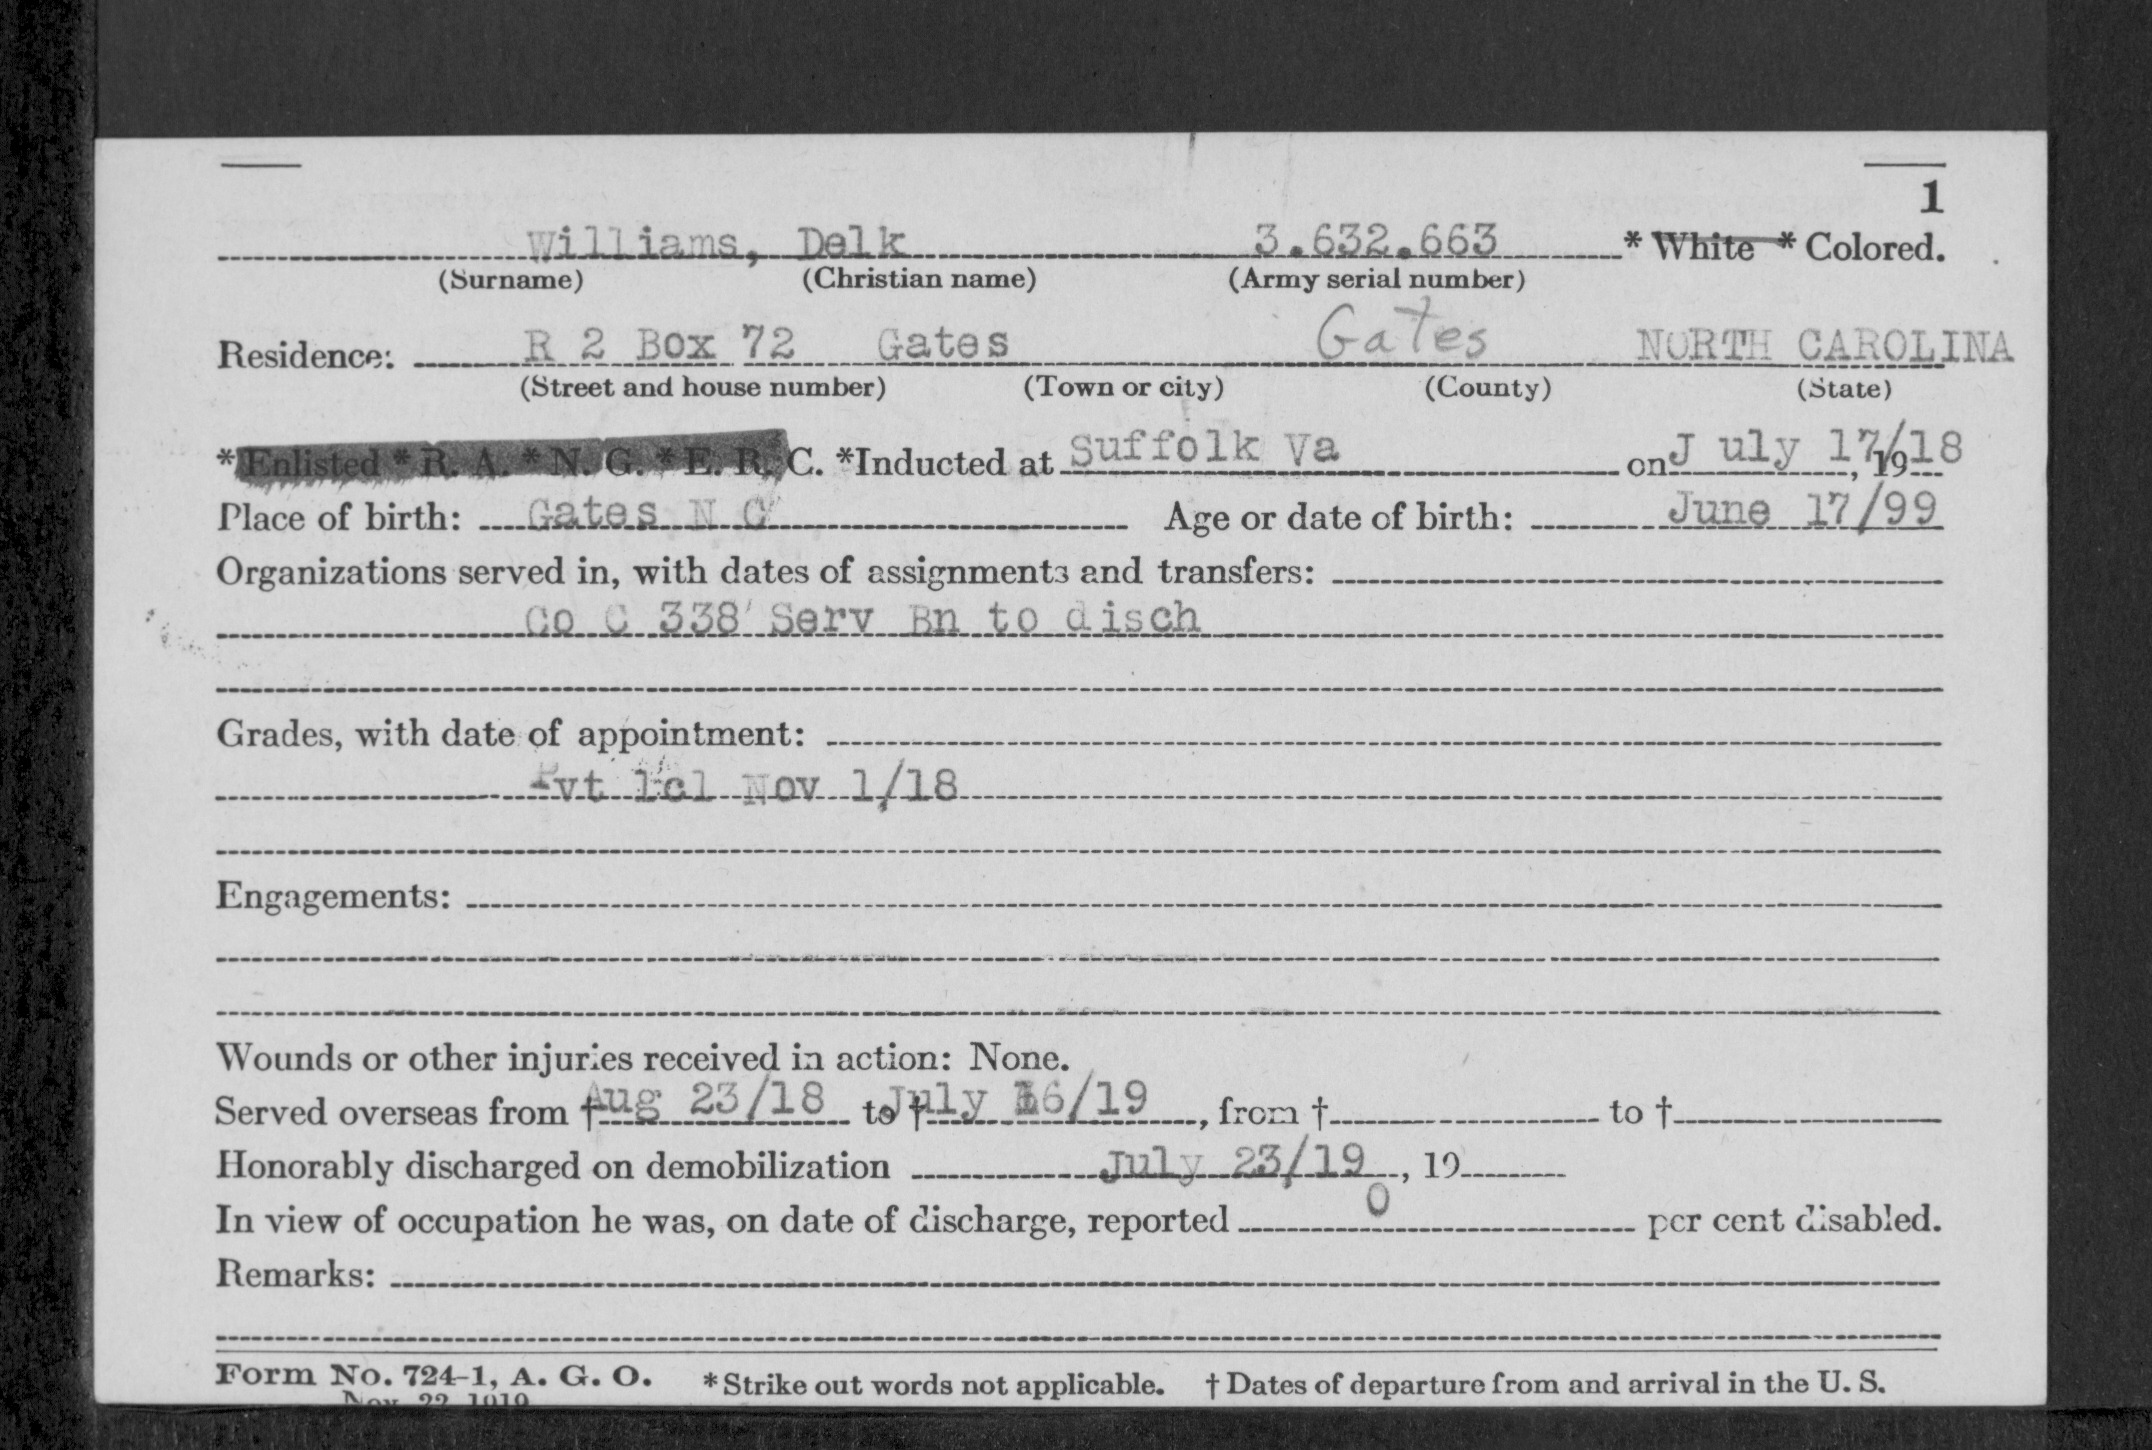 1
Williams, Delk 3.632.663 * White * Colored.
(Surname) (Christian name) (Army serial number)
Residence: R 2 Box 72 Gates Gates NORTH CAROLINA
(Street and house number) (Town or city) (County) (State)
*Enlisted * R. A. * N. G. * E. R. C. *Inducted at Suffolk Va on J uly 17/18, 19
Place of birth: Gates N C Age or date of birth: June 17/99
Organizations served in, with dates of assignments and transfers:
Co C 338 Serv Bn to disch
Grades, with date of appointment:
Pvt 1cl Nov 1/18
Engagements:
Wounds or other injuries received in action: None.
Served overseas from † Aug 23/18 to † July 16/19, from † to †
Honorably discharged on demobilization July 23/19, 19
In view of occupation he was, on date of discharge, reported 0 per cent disabled.
Remarks:
Form No. 724-1, A. G. O. * Strike out words not applicable. † Dates of departure from and arrival in the U. S.
Nov. 22, 1919